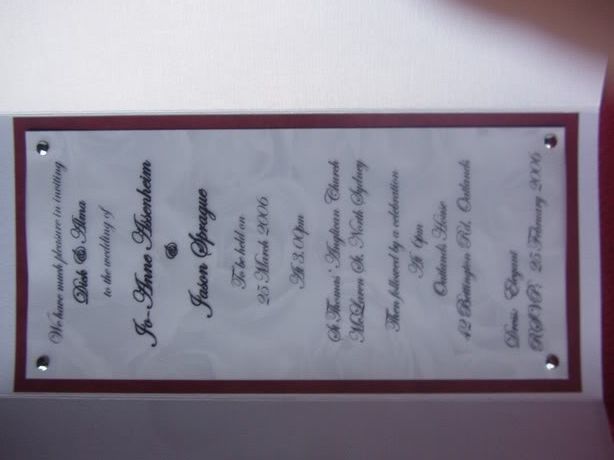 We have much pleasure in inviting
Dick & Alma
to the wedding of
Jo-Anne Assenheim
&
Jason Sprague
To be held on
25 March 2006
At 3.00pm
St Thomas' Anglican Church
McLaren St, North Sydney
Then followed by a celebration
At 6pm
Oatlands House
42 Bettington Rd, Oatlands
Dress: Elegant
RSVP: 25 February 2006